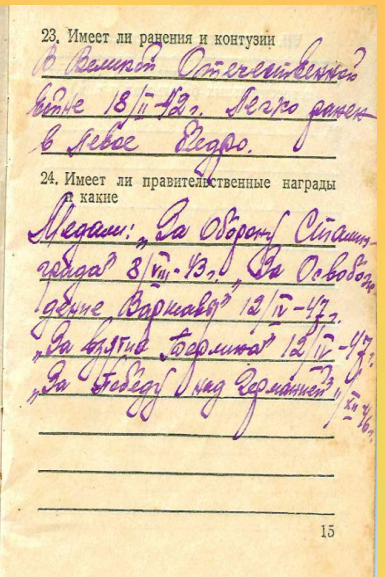 23. Имеет ли ранения и контузии
В Великой Отечественной
войне 18/II-42г. Легко ранен
в левое бедро.
24. Имеет ли правительственные награды
и какие
Медали: „За Оборону Сталин-
града" 8/VIII-43г. „За Освобож-
дение Варшавы" 12/IV-47г.
„За взятие Берлина" 12/IV-47г.
„За Победу над Германией"
15